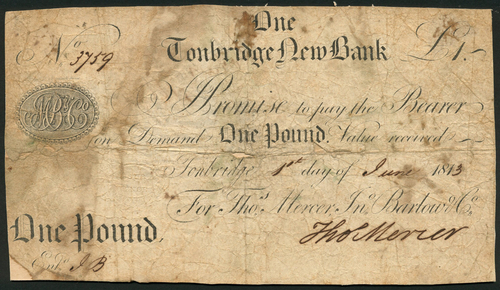 One
Tonbridge New Bank
No. 3759 £1.
I Promise to pay the Bearer
on Demand One Pound, Value received
Tonbridge 1st day of June 1813
For Thos. Mercer, Jno. Barlow & Co.
One Pound.
Thos Mercer
Entd. J B